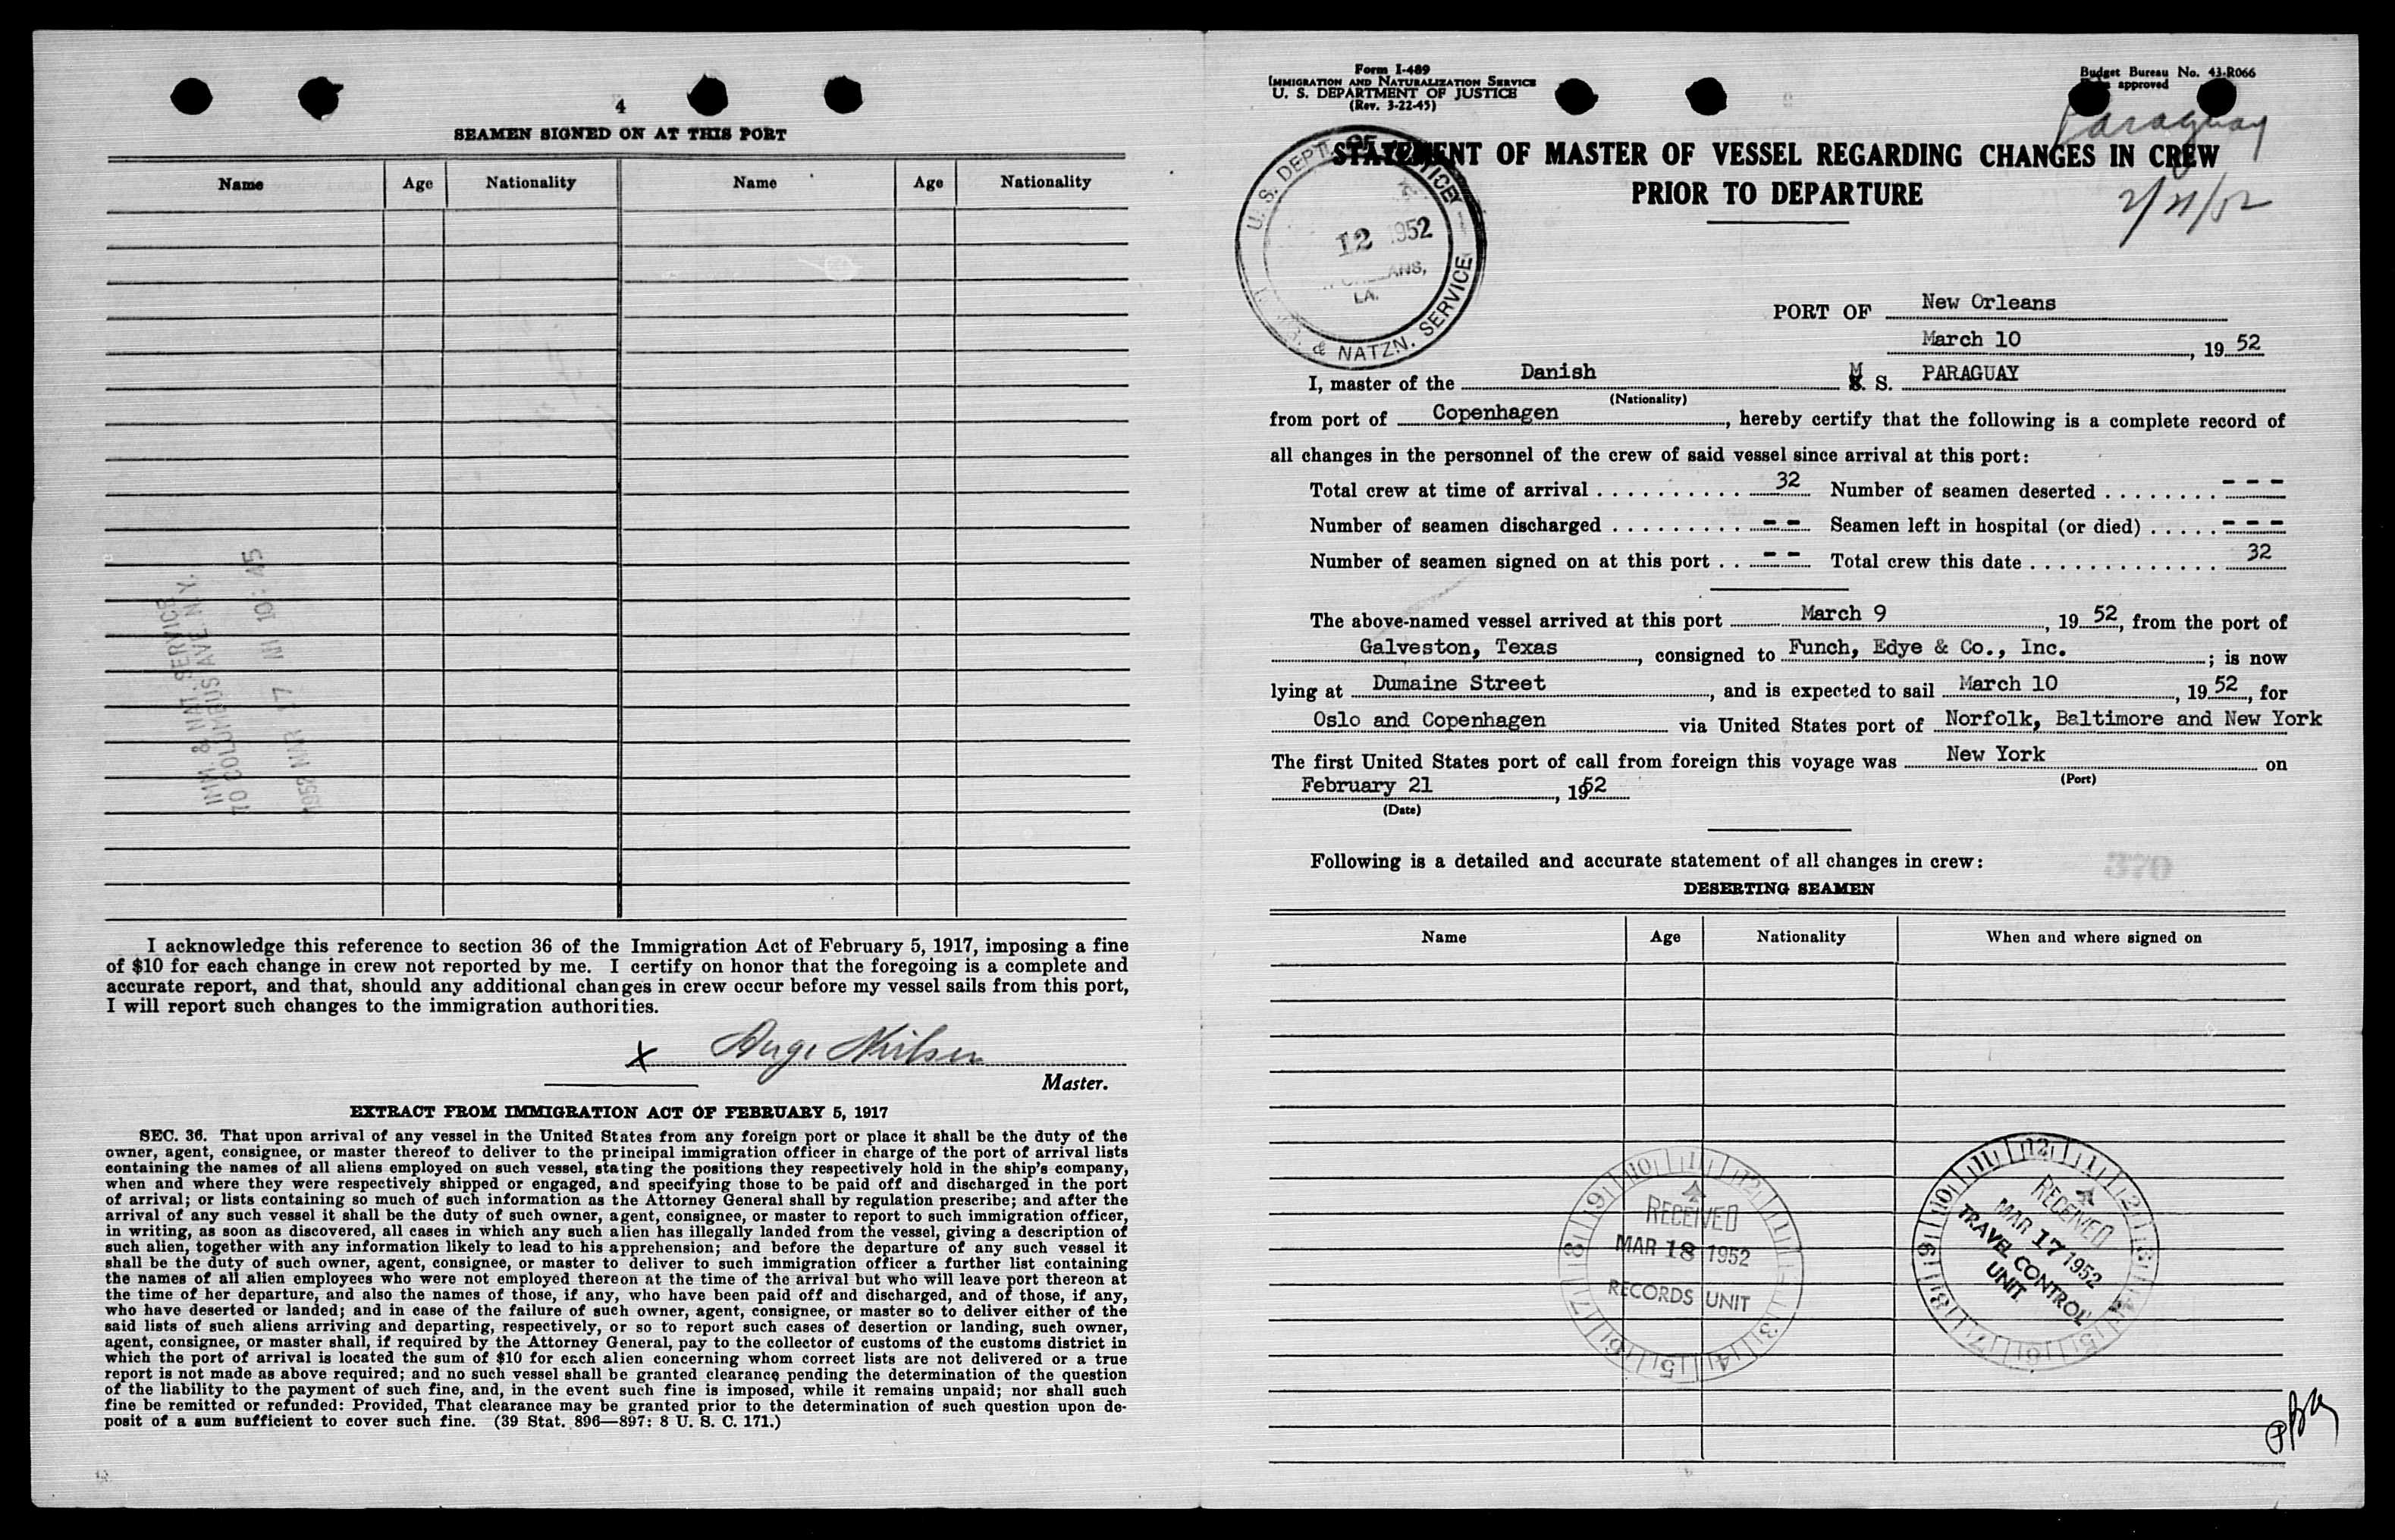 4
SEAMEN SIGNED ON AT THIS PORT
Name Age Nationality Name Age Nationality
IMM. & NAT. SERVICE
70 COLUMBUS AVE. N.Y.
1952 MAR 17 AM 10:45
I acknowledge this reference to section 36 of the Immigration Act of February 5, 1917, imposing a fine
of $10 for each change in crew not reported by me. I certify on honor that the foregoing is a complete and
accurate report, and that, should any additional changes in crew occur before my vessel sails from this port,
I will report such changes to the immigration authorities.
x Aage Nielsen
Master.
EXTRACT FROM IMMIGRATION ACT OF FEBRUARY 5, 1917
SEC. 36. That upon arrival of any vessel in the United States from any foreign port or place it shall be the duty of the
owner, agent, consignee, or master thereof to deliver to the principal immigration officer in charge of the port of arrival lists
containing the names of all aliens employed on such vessel, stating the positions they respectively hold in the ship's company,
when and where they were respectively shipped or engaged, and specifying those to be paid off and discharged in the port
of arrival; or lists containing so much of such information as the Attorney General shall by regulation prescribe; and after the
arrival of any such vessel it shall be the duty of such owner, agent, consignee, or master to report to such immigration officer,
in writing, as soon as discovered, all cases in which any such alien has illegally landed from the vessel, giving a description of
such alien, together with any information likely to lead to his apprehension; and before the departure of any such vessel it
shall be the duty of such owner, agent, consignee, or master to deliver to such immigration officer a further list containing
the names of all alien employees who were not employed thereon at the time of the arrival but who will leave port thereon at
the time of her departure, and also the names of those, if any, who have been paid off and discharged, and of those, if any,
who have deserted or landed; and in case of the failure of such owner, agent, consignee, or master so to deliver either of the
said lists of such aliens arriving and departing, respectively, or so to report such cases of desertion or landing, such owner,
agent, consignee, or master shall, if required by the Attorney General, pay to the collector of customs of the customs district in
which the port of arrival is located the sum of $10 for each alien concerning whom correct lists are not delivered or a true
report is not made as above required; and no such vessel shall be granted clearance pending the determination of the question
of the liability to the payment of such fine, and, in the event such fine is imposed, while it remains unpaid; nor shall such
fine be remitted or refunded: Provided, That clearance may be granted prior to the determination of such question upon de-
posit of a sum sufficient to cover such fine. (39 Stat. 896—897: 8 U. S. C. 171.)
Form I-489
IMMIGRATION AND NATURALIZATION SERVICE
U. S. DEPARTMENT OF JUSTICE
(Rev. 3-22-45)
Budget Bureau No. 43-R066
approved
Paraguay
STATEMENT OF MASTER OF VESSEL REGARDING CHANGES IN CREW
PRIOR TO DEPARTURE
2/21/52
U. S. DEPT. OF JUSTICE
12 1952
LA.
& NATZN. SERVICE
PORT OF New Orleans
March 10, 1952
I, master of the Danish M. S. PARAGUAY
(Nationality)
from port of Copenhagen, hereby certify that the following is a complete record of
all changes in the personnel of the crew of said vessel since arrival at this port:
Total crew at time of arrival . . . . . . . . . . . 32 Number of seamen deserted . . . . . . . . - - -
Number of seamen discharged . . . . . . . . . . - - Seamen left in hospital (or died) . . . . . - - -
Number of seamen signed on at this port . . - - Total crew this date . . . . . . . . . . . . . . 32
The above-named vessel arrived at this port March 9, 1952, from the port of
Galveston, Texas, consigned to Funch, Edye & Co., Inc.; is now
lying at Dumaine Street, and is expected to sail March 10, 1952, for
Oslo and Copenhagen via United States port of Norfolk, Baltimore and New York
The first United States port of call from foreign this voyage was New York on
(Port)
February 21, 1952
(Date)
Following is a detailed and accurate statement of all changes in crew:
370
DESERTING SEAMEN
Name Age Nationality When and where signed on
RECEIVED
MAR 18 1952
RECORDS UNIT
RECEIVED
MAR 17 1952
TRAVEL CONTROL
UNIT